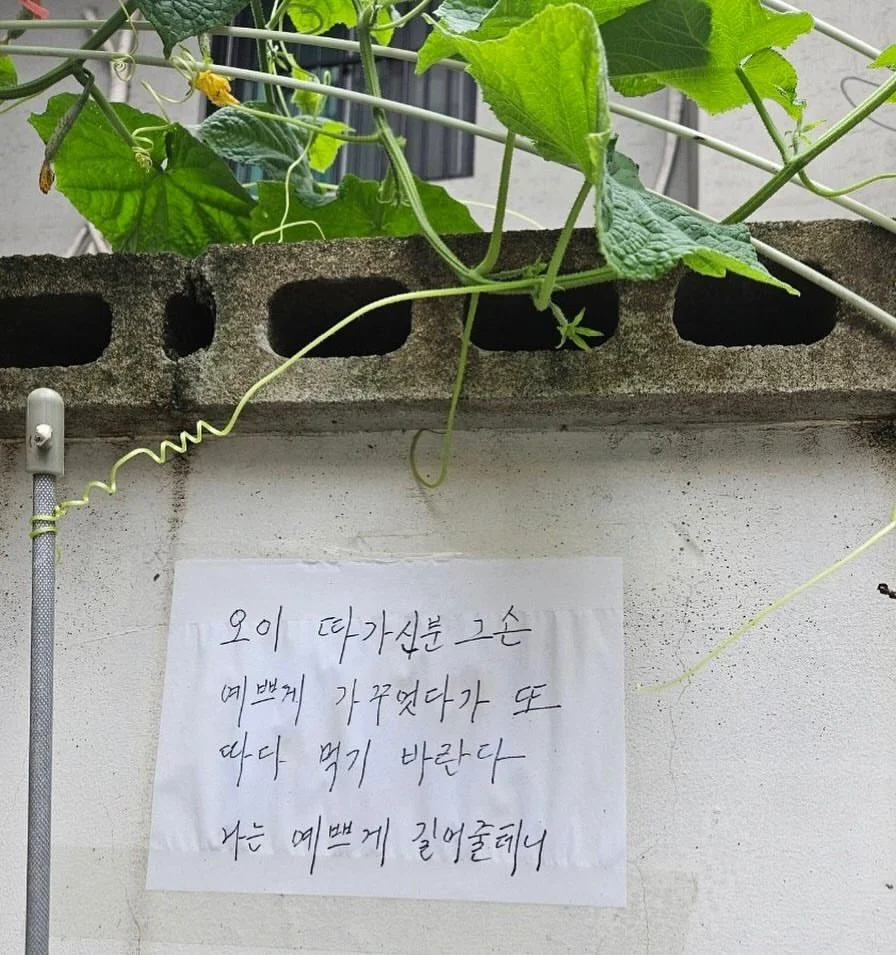 오이 따가신분 그손
예쁘게 가꾸었다가 또
따다 먹기 바란다
나는 예쁘게 길어줄테니